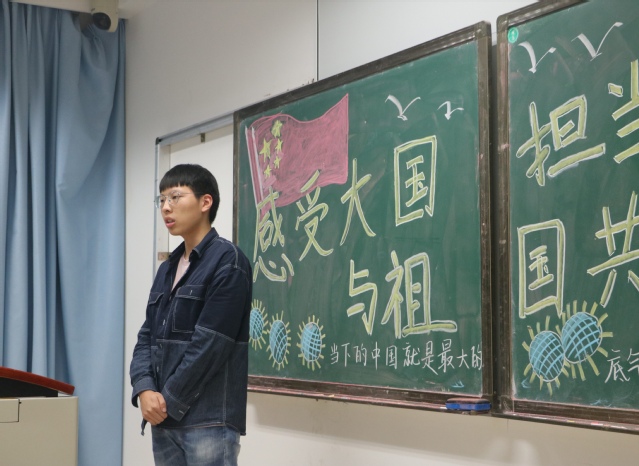 感受大国担当
与祖国共
当下的中国就是最大的底气